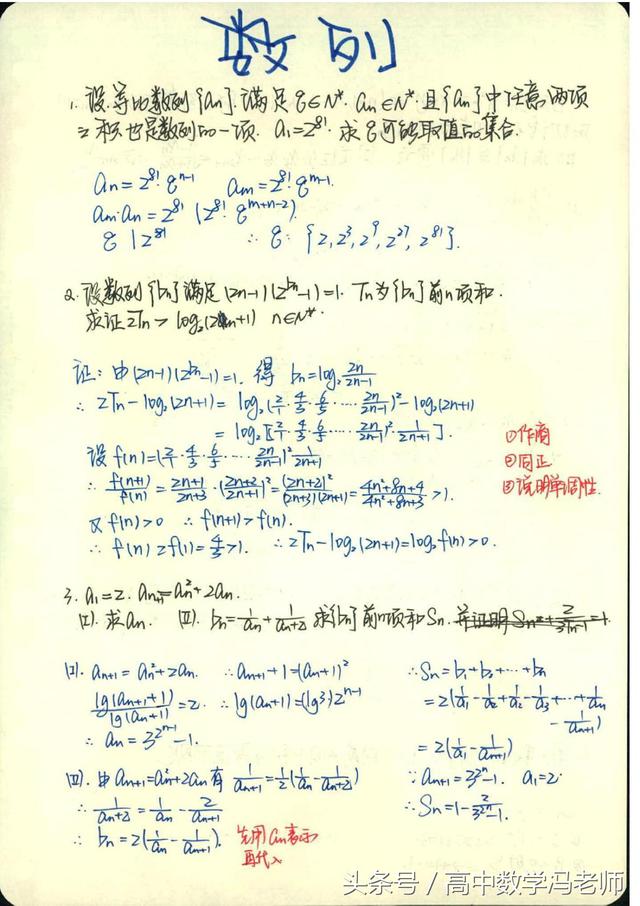 数列
1. 设等比数列{an}.满足q∈N*. an∈N*.且{an}中任意两项
之积也是数列的一项. a1=2^81. 求q可能取值的集合.
an=2^81·q^(n-1) am=2^81·q^(m-1).
am·an=2^81 (2^81·q^(m+n-2))
q|2^81 ∴ q:{2,2^3,2^9,2^27,2^81}.
2. 设数列{bn}满足(2n-1)(2^bn-1)=1. Tn为{bn}前n项和.
求证2Tn>log2(2n+1) n∈N*.
证:由(2n-1)(2^bn-1)=1. 得 bn=log2 2n/(2n-1)
∴ 2Tn-log2(2n+1)=log2(2/1·4/3·6/5·…·2n/(2n-1))^2-log2(2n+1)
=log2[(2/1·4/3·6/5·…·2n/(2n-1))^2·1/(2n+1)].
设f(n)=(2/1·4/3·6/5·…·2n/(2n-1))^2·1/(2n+1)
∴ f(n+1)/f(n)=(2n+1)/(2n+3)·((2n+2)/(2n+1))^2=(2n+2)^2/((2n+3)(2n+1))=(4n^2+8n+4)/(4n^2+8n+3)>1.
又f(n)>0 ∴ f(n+1)>f(n).
∴ f(n)≥f(1)=4/3>1. ∴2Tn-log2(2n+1)=log2f(n)>0.
①作商
②同正
③说明单调性.
3. a1=2. an+1=an^2+2an.
(I).求an. (II). bn=1/an+1/(an+2) 求{bn}前n项和Sn.并证明Sn+2/(3Tn-1)=1
(I). an+1=an^2+2an. ∴an+1+1=(an+1)^2
lg(an+1+1)/lg(an+1)=2. ∴lg(an+1)=(lg3)·2^(n-1)
∴ an=3^(2^(n-1))-1.
(II).由an+1=an^2+2an 有 1/an+1=1/2(1/an-1/(an+2))
∴ 1/(an+2)=1/an-2/an+1
∴ bn=2(1/an-1/an+1).
先用an表示
再代入
∴Sn=b1+b2+…+bn
=2(1/a1-1/a2+1/a2-1/a3+…+1/an
-1/an+1)
=2(1/a1-1/an+1)
∵an+1=3^(2^n)-1. a1=2.
∴Sn=1-2/(3^(2^n)-1).
头条号/高中数学冯老师